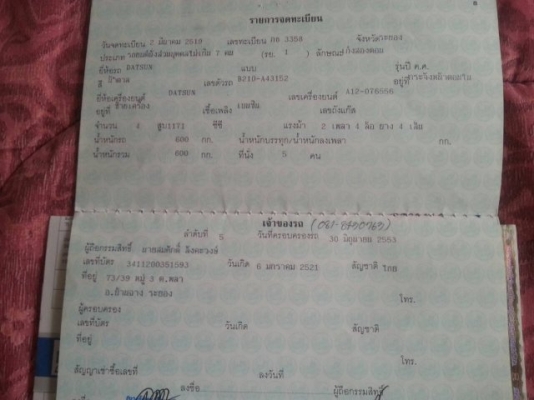 รายการจดทะเบียน
วันจดทะเบียน 7 มีนาคม 2519 เลขทะเบียน กธ 3358 จังหวัด
ประเภท รถยนต์นั่งส่วนบุคคลไม่เกิน 7 คน (รย. 1 ) ลักษณะ
ยี่ห้อรถ DATSUN แบบ รุ่นปี ค.ศ.
สี เลขตัวรถ B210-A43152 อยู่ที่
ยี่ห้อเครื่องยนต์ DATSUN เลขเครื่องยนต์ A12-076556
อยู่ที่ เชื้อเพลิง เบนซิน เลขถังแก๊ส
จำนวน 4 สูบ 1171 ซีซี แรงม้า 2 เพลา 4 ล้อ ยาง 4 เส้น
น้ำหนักรถ 680 กก. น้ำหนักบรรทุก/น้ำหนักลงเพลา กก.
น้ำหนักรวม 680 กก. ที่นั่ง 5 คน
เจ้าของรถ
ลำดับที่ 5 วันที่ครอบครองรถ 30 มิถุนายน 2553
ผู้ถือกรรมสิทธิ์ นายสมศักดิ์
เลขที่บัตร 3411200351593 วันเกิด 6 มกราคม 2521 สัญชาติ ไทย
ที่อยู่ 73/39 หมู่ 3 ต.พลา
อ.บ้านฉาง ระยอง โทร.
ผู้ครอบครอง
เลขที่บัตร วันเกิด สัญชาติ
ที่อยู่
โทร.
สัญญาเช่าซื้อเลขที่ ลงวันที่
ลงชื่อ ผู้ถือกรรมสิทธิ์